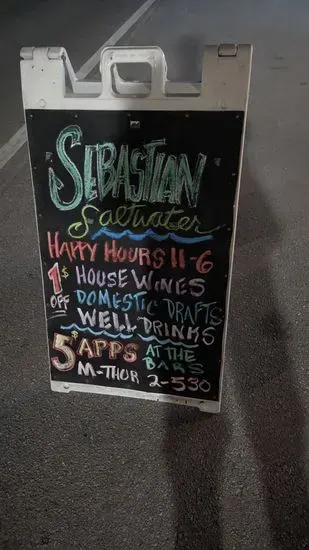 SEBASTIAN
Saltwater
HAPPY HOURS 11-6
1$ OFF HOUSE WINES
DOMESTIC DRAFTS
WELL DRINKS
5$ APPS AT THE BARS
M-THUR 2-530